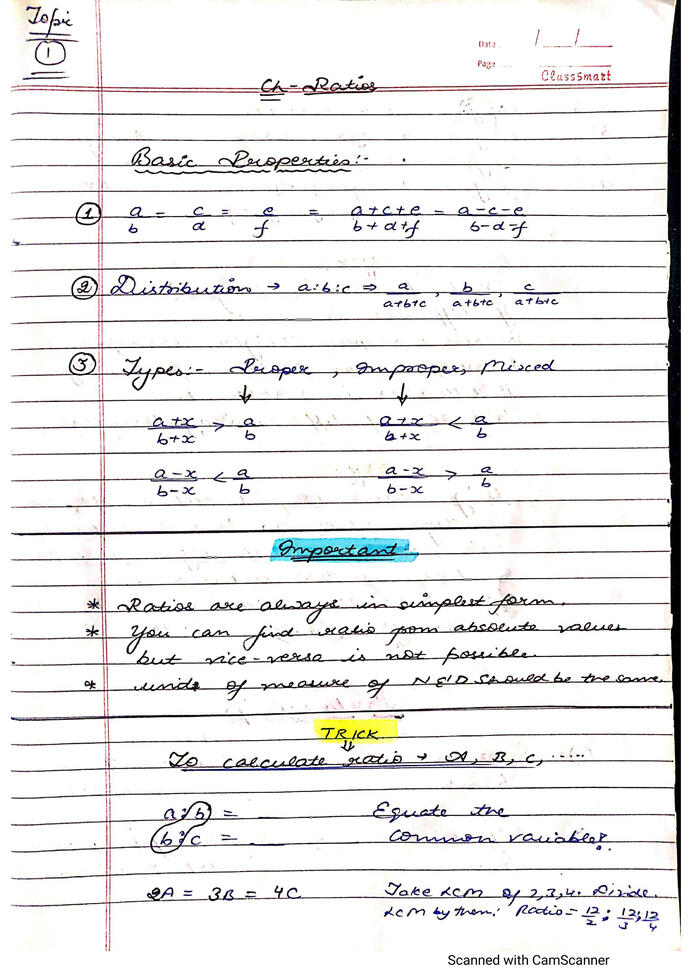 Topic
1
Date
Page
ClassSmart
Ch - Ratios
Basic Properties:-
① a/b = c/d = e/f = a+c+e/b+d+f = a-c-e/b-d-f
② Distribution → a:b:c ⇒ a/a+b+c, b/a+b+c, c/a+b+c
③ Types:- Proper, Improper, Mixed
↓ ↓
a+x/b+x > a/b a+x/b+x < a/b
a-x/b-x < a/b a-x/b-x > a/b
Important:
* Ratios are always in simplest form.
* You can find ratio from absolute values
but vice-versa is not possible.
* units of measure of N & D should be the same.
TRICK
⇓
To calculate ratio → A, B, C, .....
a:b = __ Equate the
b:c = __ common variable!
2A = 3B = 4C Take LCM of 2,3,4. Divide
LCM by them: Ratio = 12/2 : 12/3 : 12/4
Scanned with CamScanner